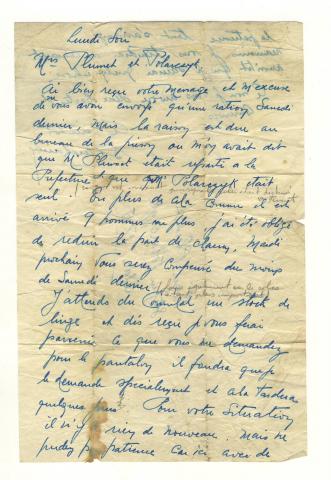 Lundi Soir
Mrs Plumet et Polarczyk.
Ai bien reçu votre message et m'excuse
de vous avoir envoyé qu'une ration Samedi
dernier, mais la raison est due au
bureau de la prison ou m'on avait dit
que Mr Plumet était reparti a la
Prefecture et que Mr Polarczyk était
seul ! En plus de cela comme il est
arrivé 9 hommes de plus j'ai été obligé
de reduire la part de chacun, Mardi
prochain vous serez compensé du moins
de Samedi dernier.
J'attends du Consulat un stock de
linge et dès reçu je vous ferai
parvenir ce que vous me demandez
pour le pantalon, il faudra que je
le demande specialement et cela tardera
quelques jours. Pour votre Situation
il n'y a rien de nouveau. Mais ne
perdez pas patience car ici avec de